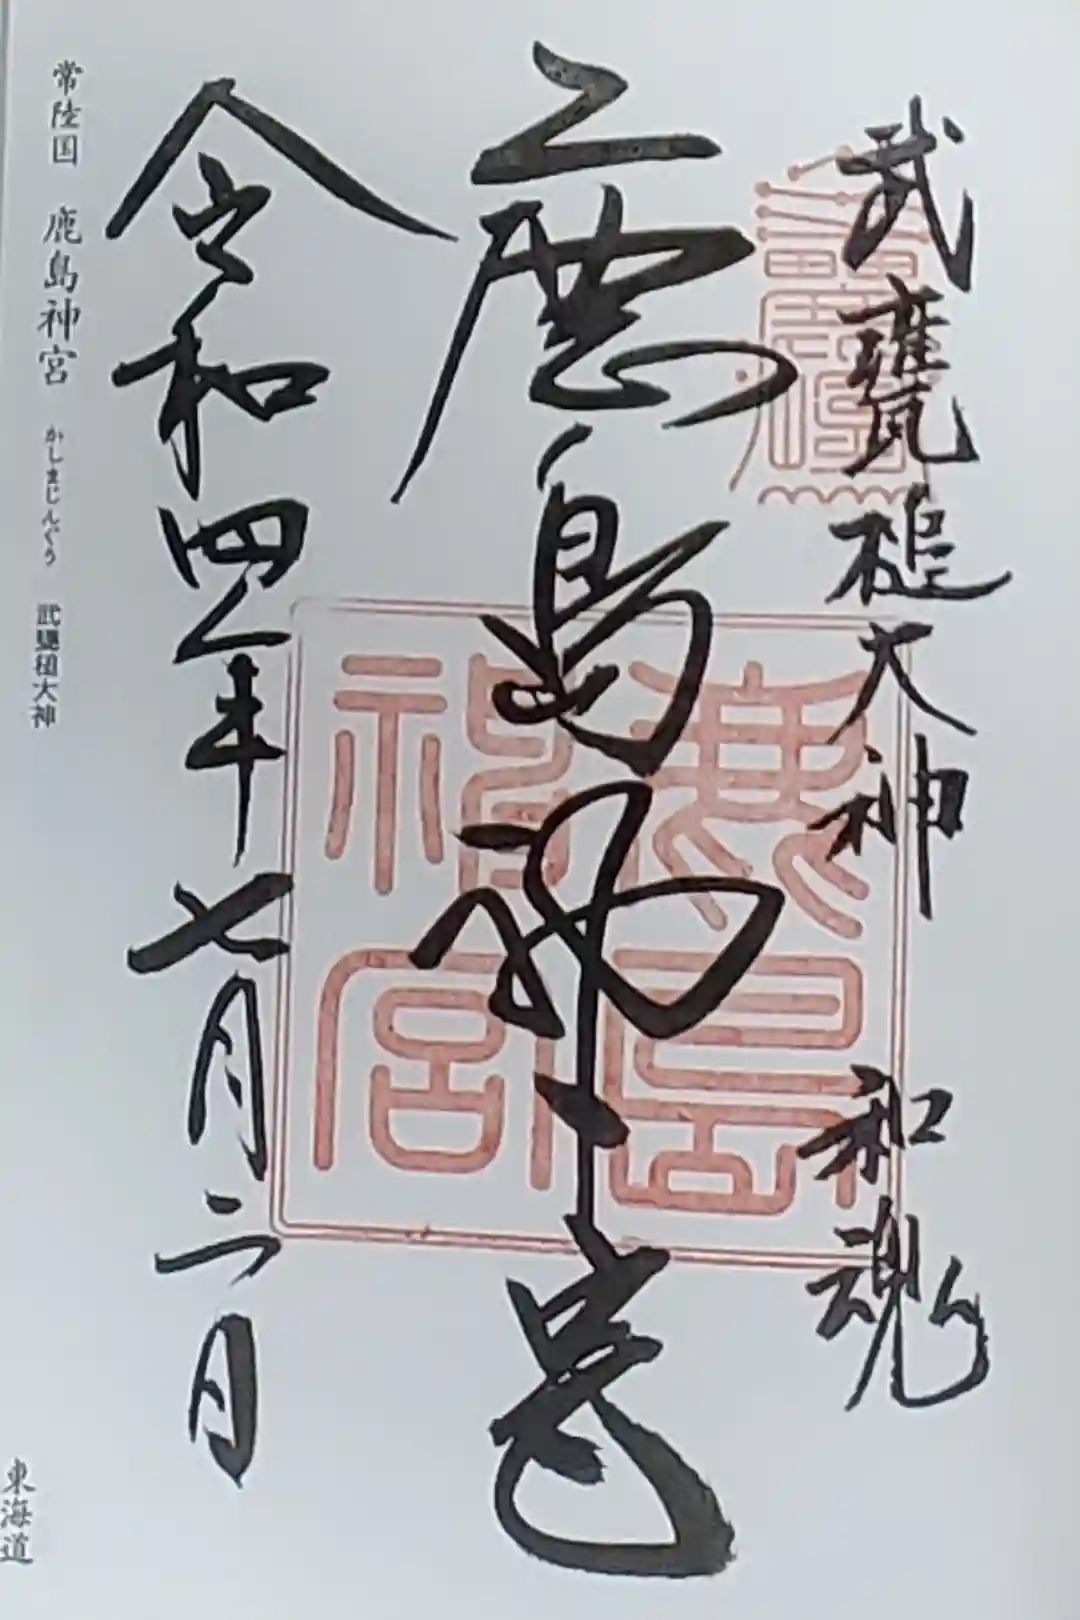 武甕槌大神 和魂
鹿島神宮
鹿島
神宮
令和四年七月二日
常陸国 鹿島神宮 かしまじんぐう 武甕槌大神
東海道